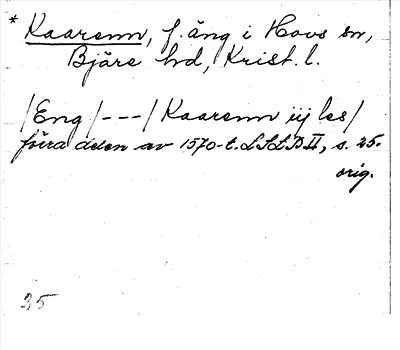 * Kaarenn, f. äng i Hovs sn,
Bjäre hd, Krist. l.
/Eng/---/Kaarenn iij les/
förra delen av 1570-t. LSLB II, s. 25.
orig.
35